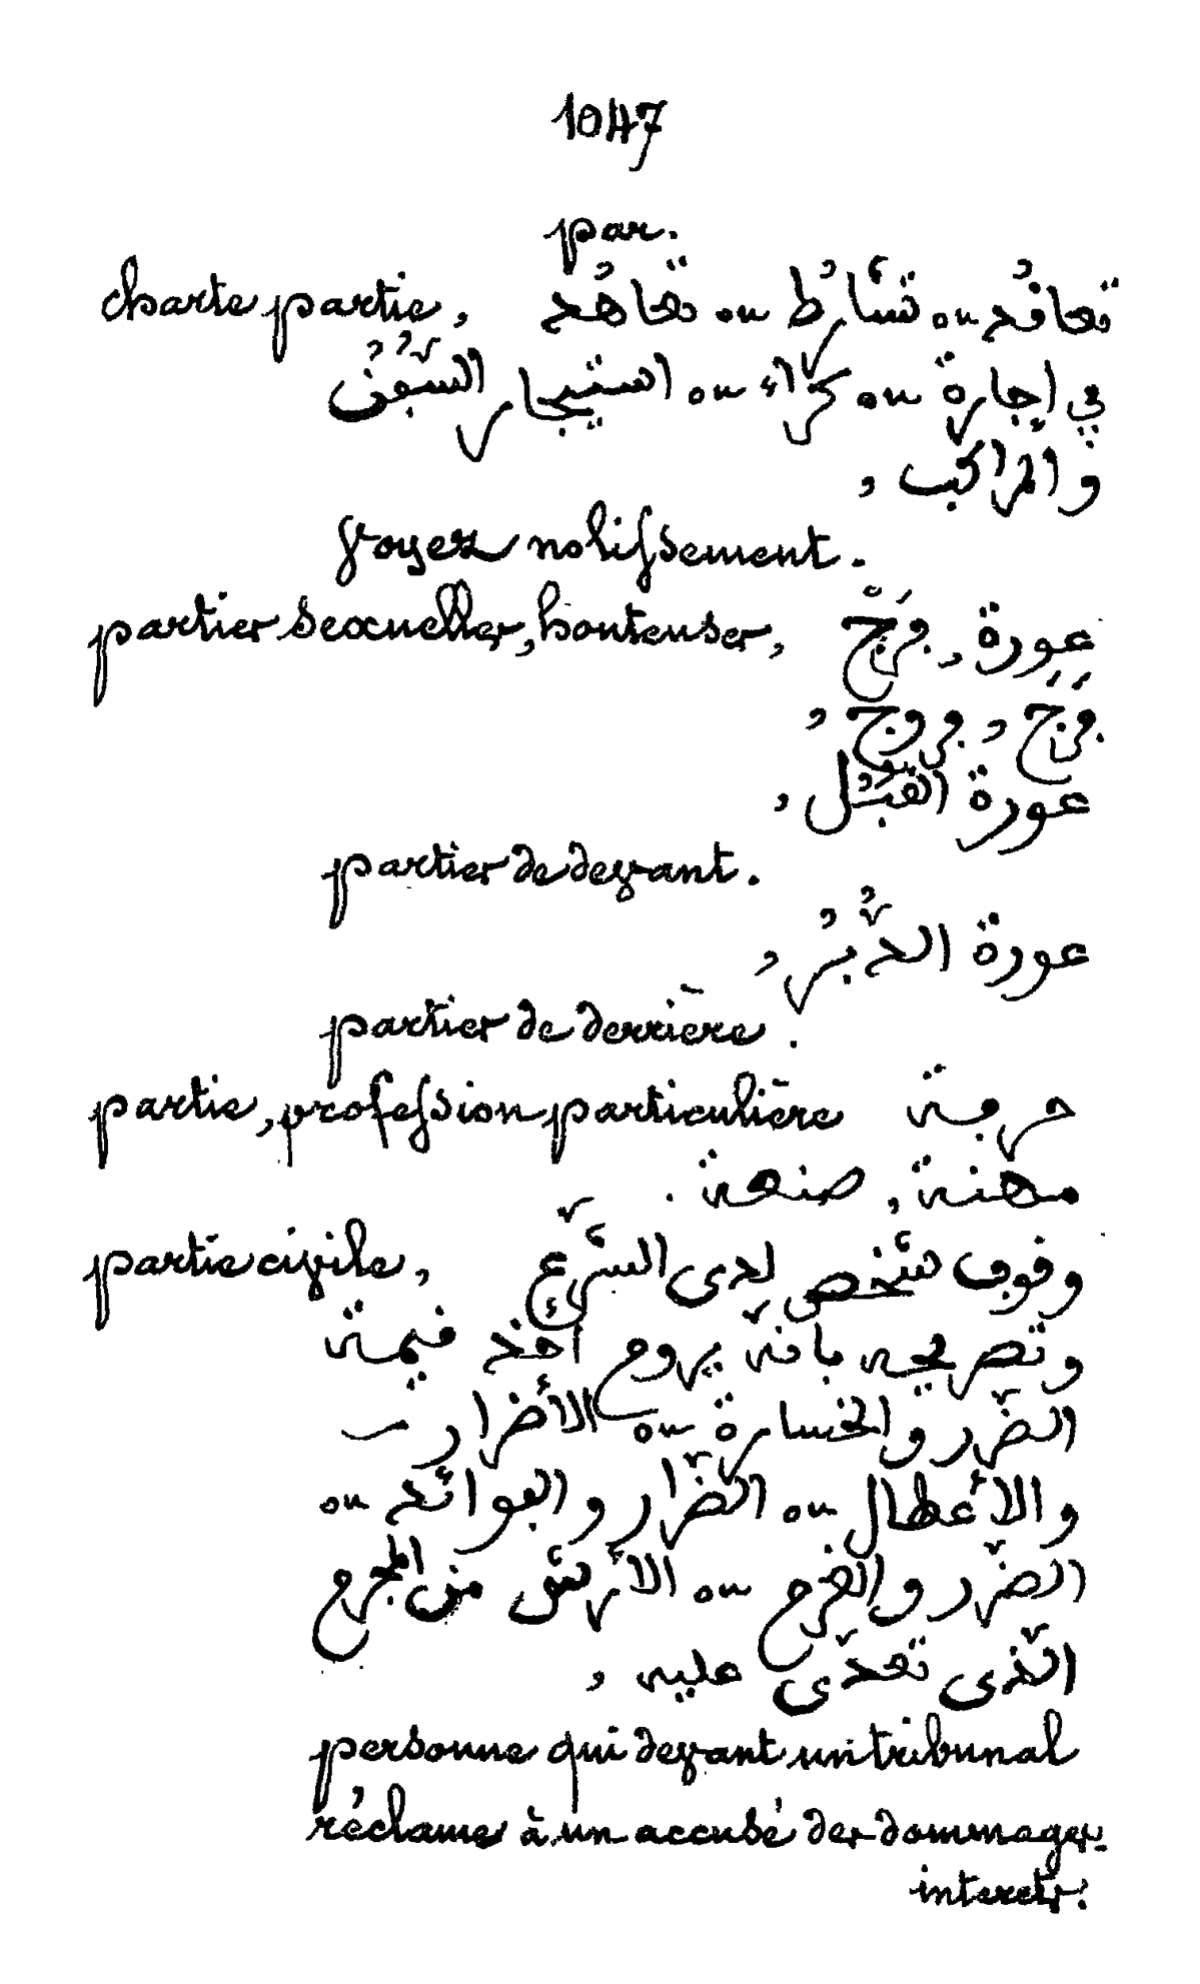 1047
par.
charte partie, تعاقُد ou تشارُط ou تعاهُد
في إجارة ou كراء ou استيجار السُّفُن
والمراكب ,
Voyez nolissement.
parties sexuelles, honteuses, عورة , فَرْج
فَرَج , فروج ,
عورة القُبُل ,
parties de devant.
عورة الدُّبُر ,
parties de derrière.
partie, profession particulière حرفة
مهنة , صنعة .
partie civile, وقوف شخص لدى الشّرع
وتصريحه بانّه يروم أخذ قيمة
الضّرر والخسارة ou الأضرار
والأعطال ou الضّرار والعوائد ou
الضّرر والغرم ou الأرش من المجرم
الّذى تعدّى عليه ,
personne qui devant un tribunal
réclame à un accusé des dommages-
interets.